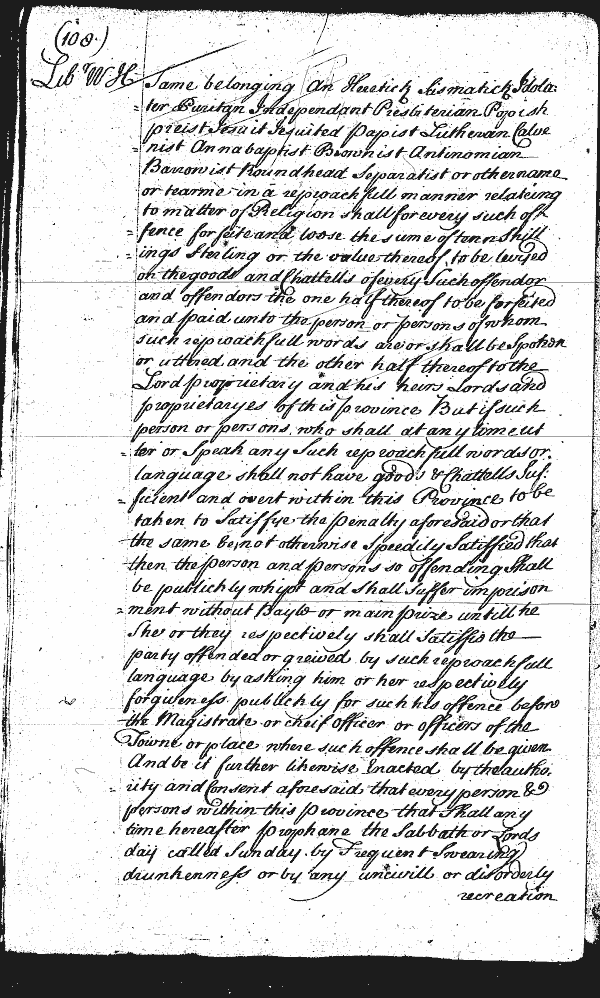 (108.)
Lib WH
Same belonging An Heretick Sismatick Idola=
ter Puritan Independant Presbiterian Popish
= preist Jesuit Jesuited Papist Lutheran Calve
= nist Annabaptist Brownist Antinomian
Barrowist Roundhead Separatist or other name
or tearme in a reproachfull manner relateing
to matter of Religion shall for every such of
= fence forfeite and loose the sume of tenn Shill
= ings Sterling or the value thereof to be levyed
on the goods and Chattells of every Such offendor
and offendors the one half thereof to be forfeited
and paid unto the person or persons of whom
such reproachfull words are or shall be Spoken
or uttered and the other half thereof to the
Lord proprietary and his heirs Lords and
proprietaryes of this province But if such
person or persons who shall at any time ut
= ter or Speak any Such reproachfull words or
language shall not have goods & Chattells Suf
= ficient and overt within this Province to be
taken to Satisfye the penalty aforesaid or that
the same be not otherwise Speedily Satisfied that
then the person and persons so offending Shall
be publickly whipt and shall Suffer imprison
= ment without Bayle or main prize untill he
She or they respectively shall Satisfie the
party offended or greived by such reproachfull
language by asking him or her respectively
forgiveness publickly for such his offence before
the Magistrate or cheif officer or officers of the
Towne or place where such offence shall be given.
And be it further likewise Enacted by the autho
= rity and Consent aforesaid that every person &
persons within this Province that Shall any
time hereafter prophane the Sabbath or Lords
day called Sunday by Frequent Swearing
drunkenness or by any uncivill or disorderly
recreation